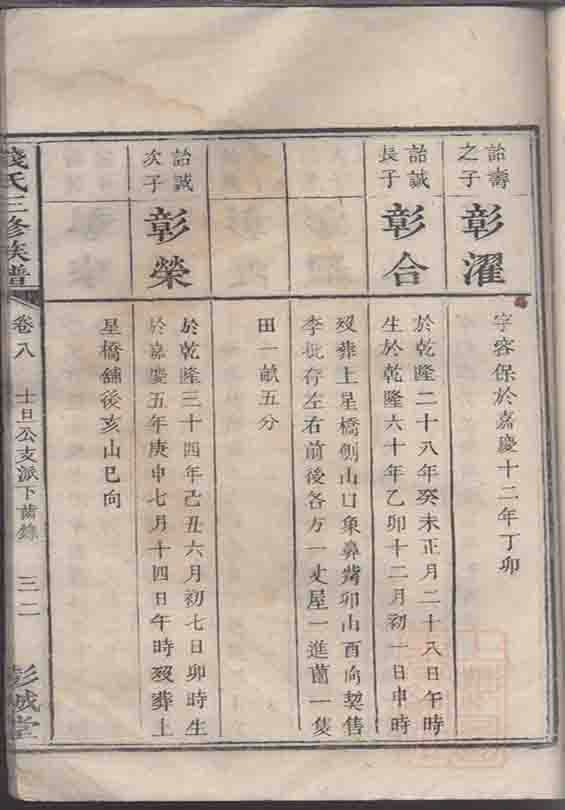 詒壽
之子
彰濯
字容保於嘉慶十二年丁卯
詒誠
長子
彰合
於乾隆二十八年癸未正月二十八日午時
生於乾隆六十年乙卯十二月初一日申時
歿葬上星橋刨山口象鼻嘴卯山酉向契售
李批存左右前後各方一丈屋一進蘭一隻
田一畝五分
詒誠
次子
彰榮
於乾隆三十四年己丑六月初七日卯時生
於嘉慶五年庚申七月十四日午時歿葬上
星橋舖後亥山巳向
錢氏三修族譜
卷八
士旦公支派下齒錄
三二
彭城堂